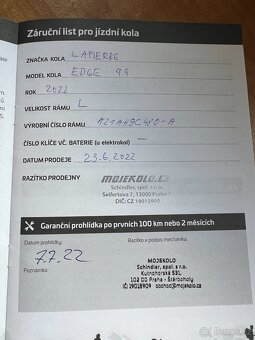 Záruční list pro jízdní kola
ZNAČKA KOLA LAPIERRE
MODEL KOLA EDGE 99
ROK 2022
VELIKOST RÁMU L
VÝROBNÍ ČÍSLO RÁMU
ČÍSLO KLÍČE VČ. BATERIE (u elektrokol) —
DATUM PRODEJE 23.6.2022
RAZÍTKO PRODEJNY MOJEKOLO.CZ
Schindler, spol. s r.o.
Seifertova 7, 13000 Praha
DIČ: CZ 19015909
Garanční prohlídka po prvních 100 km nebo 2 měsících
Datum prohlídky: Razítko a podpis mechanika:
7.7.22
Poznámka:
MOJEKOLO
Schindler, spol. s r.o.
Kutnohorská 531,
102 00 Praha - Štěrboholy
IČ: 19015909 obchod@mojekolo.cz